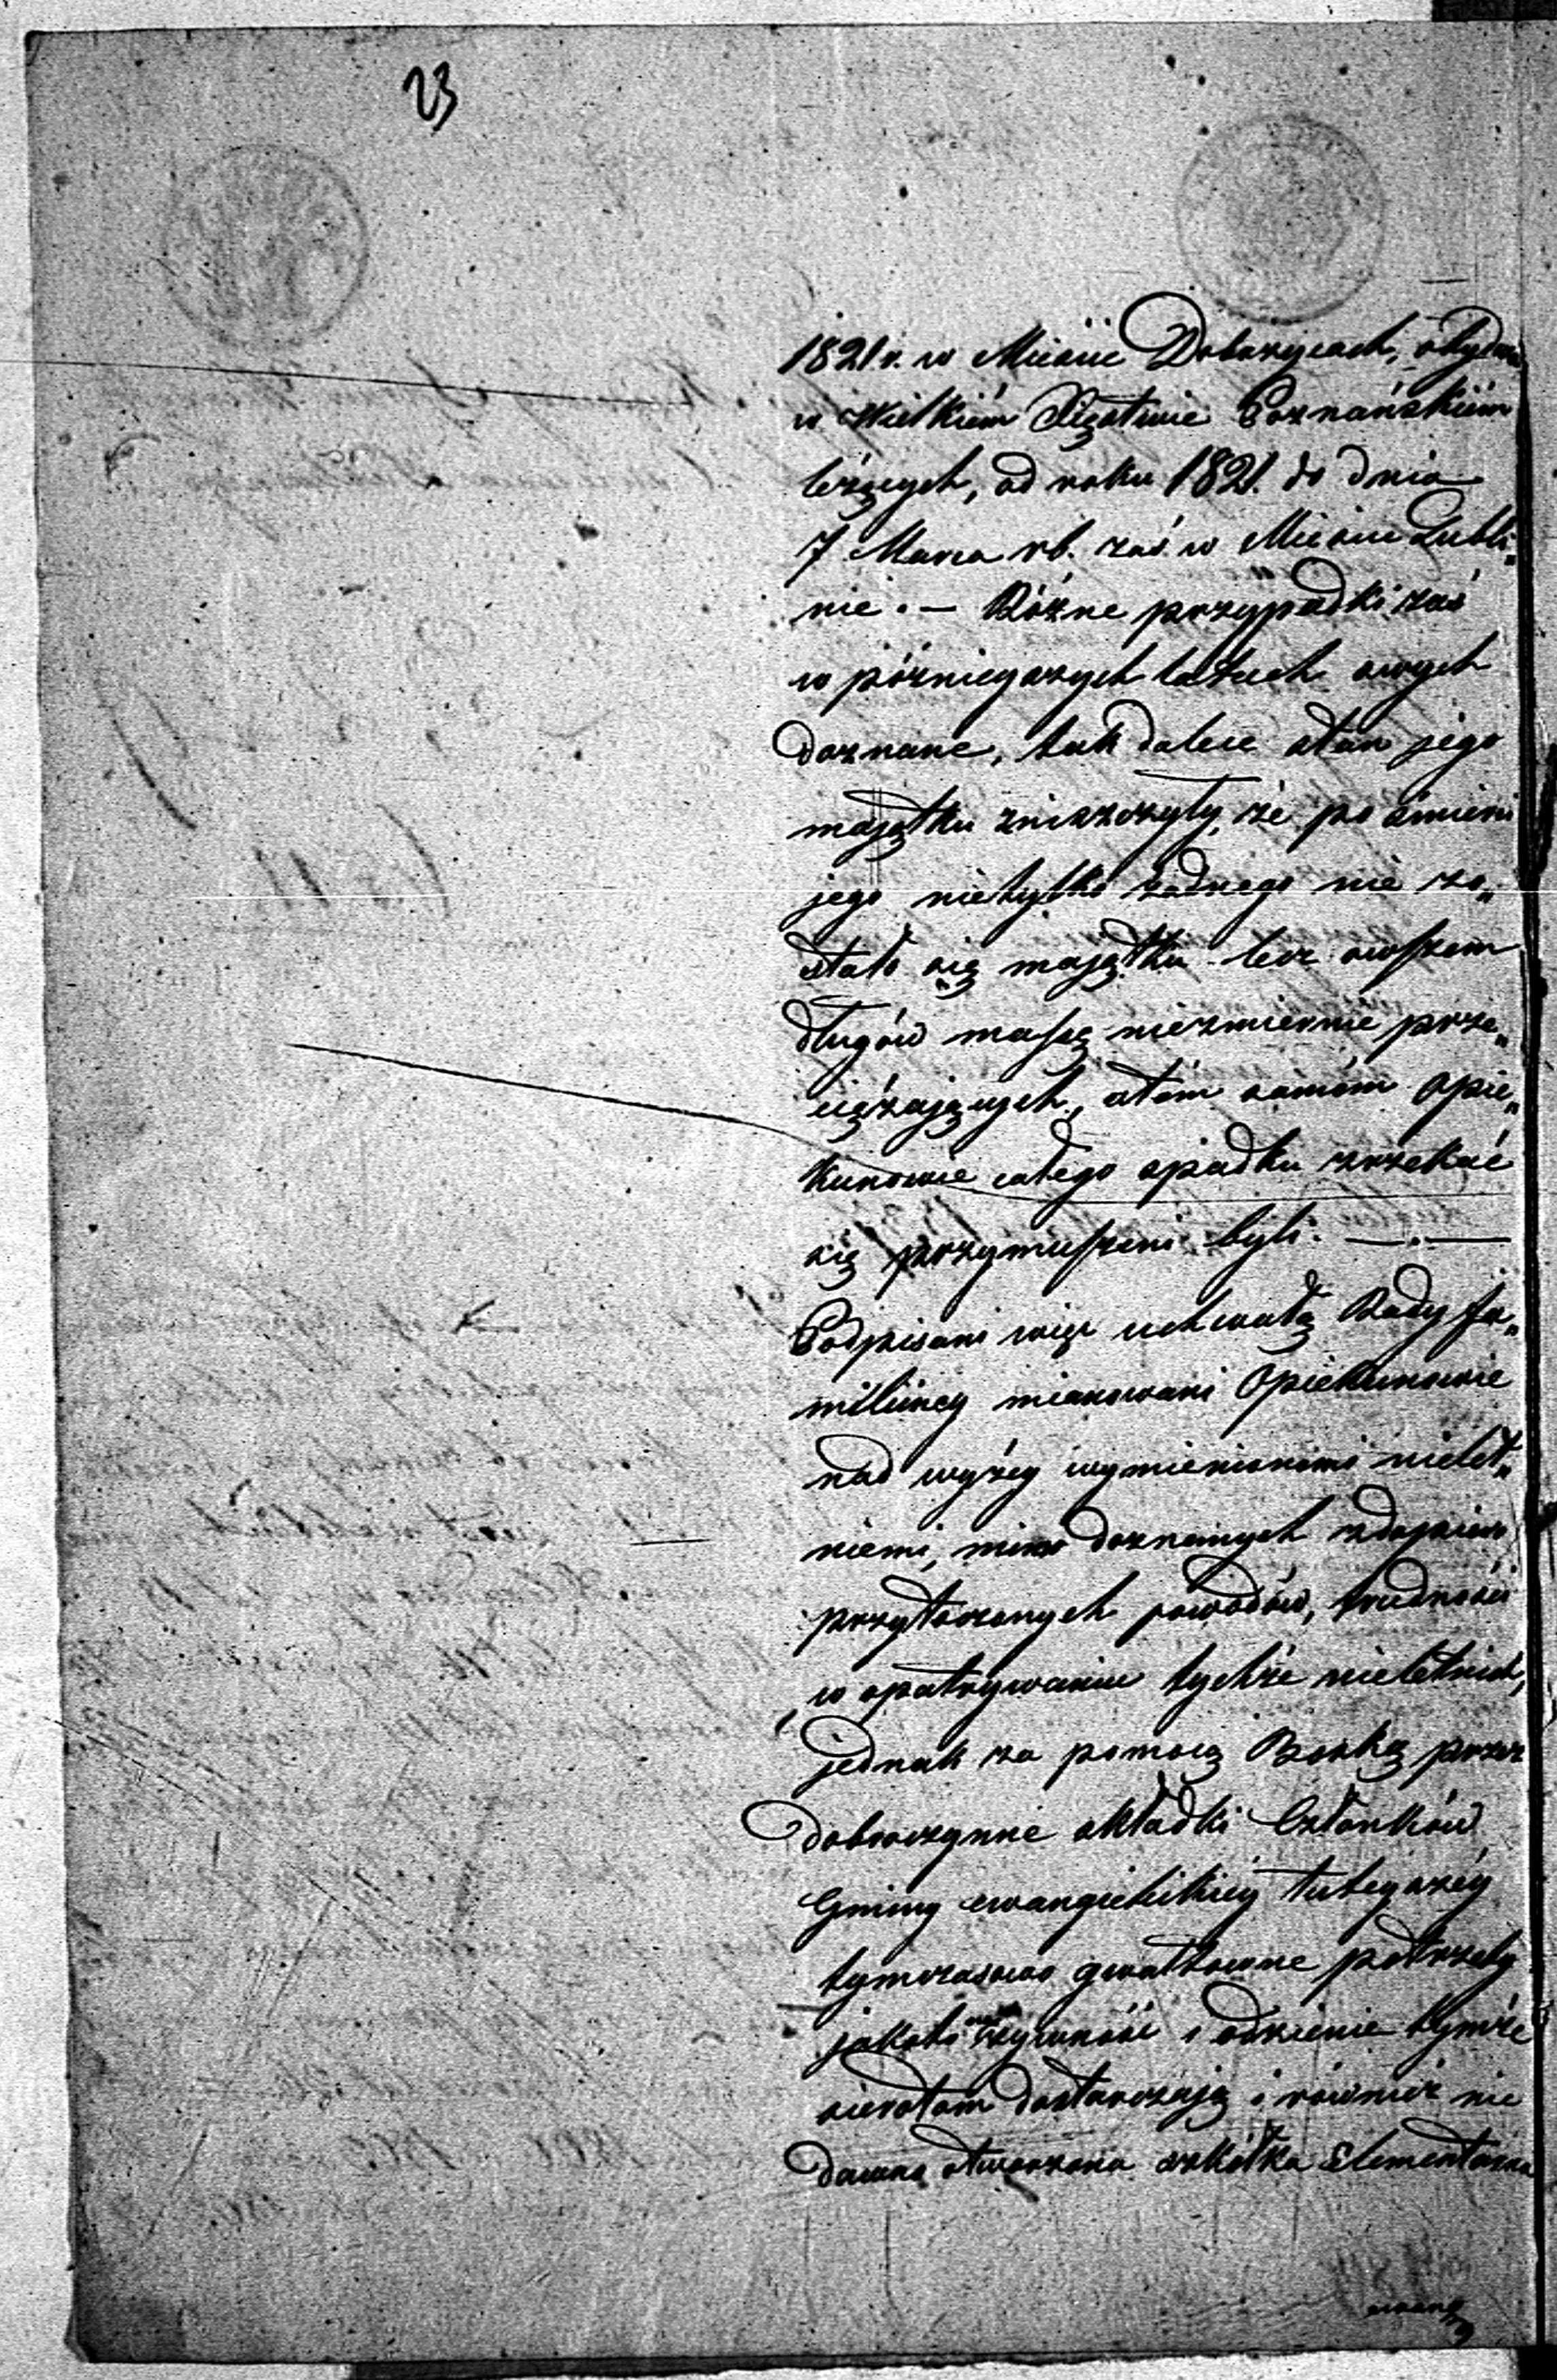 23
1821 r. w Mieście Dobrzycach, obydwa
w Wielkiém Xięstwie Poznańskiém
leżących, od roku 1821. do dnia
7 Marca rb. zaś w Mieście Lubli„
nie. — Różne przypadki zaś
w późnieyszych latach swych
doznane, tak dalece stan jego
majątku zniszczyły, że po śmierci
jego nietylko żadnego nie zo„
stało się majątku lecz owszem
długów massę niezmiernie prze„
ciążających, a tém samém Opie„
kunowie całego spadku zrzekać
się przymuszeni byli. —
Podpisani więc uchwałą Rady fa„
miliiney mianowani Opiekunowie
nad wyżey wymienionemi nielet„
niemi, mimo doznanych z dopiero
przytoczonych powodów, trudności
w opatrywaniu tychże nieletnich,
jednak za pomocą Boską przez
dobroczynne składki Członków
Gminy ewangielickiey tuteyszéy
tymczasowo gwałtowne potrzeby
jakoto na żywność i odzienie tymże
sierotom dostarczają i również nie
dawno otworzona szkółka Elementarna